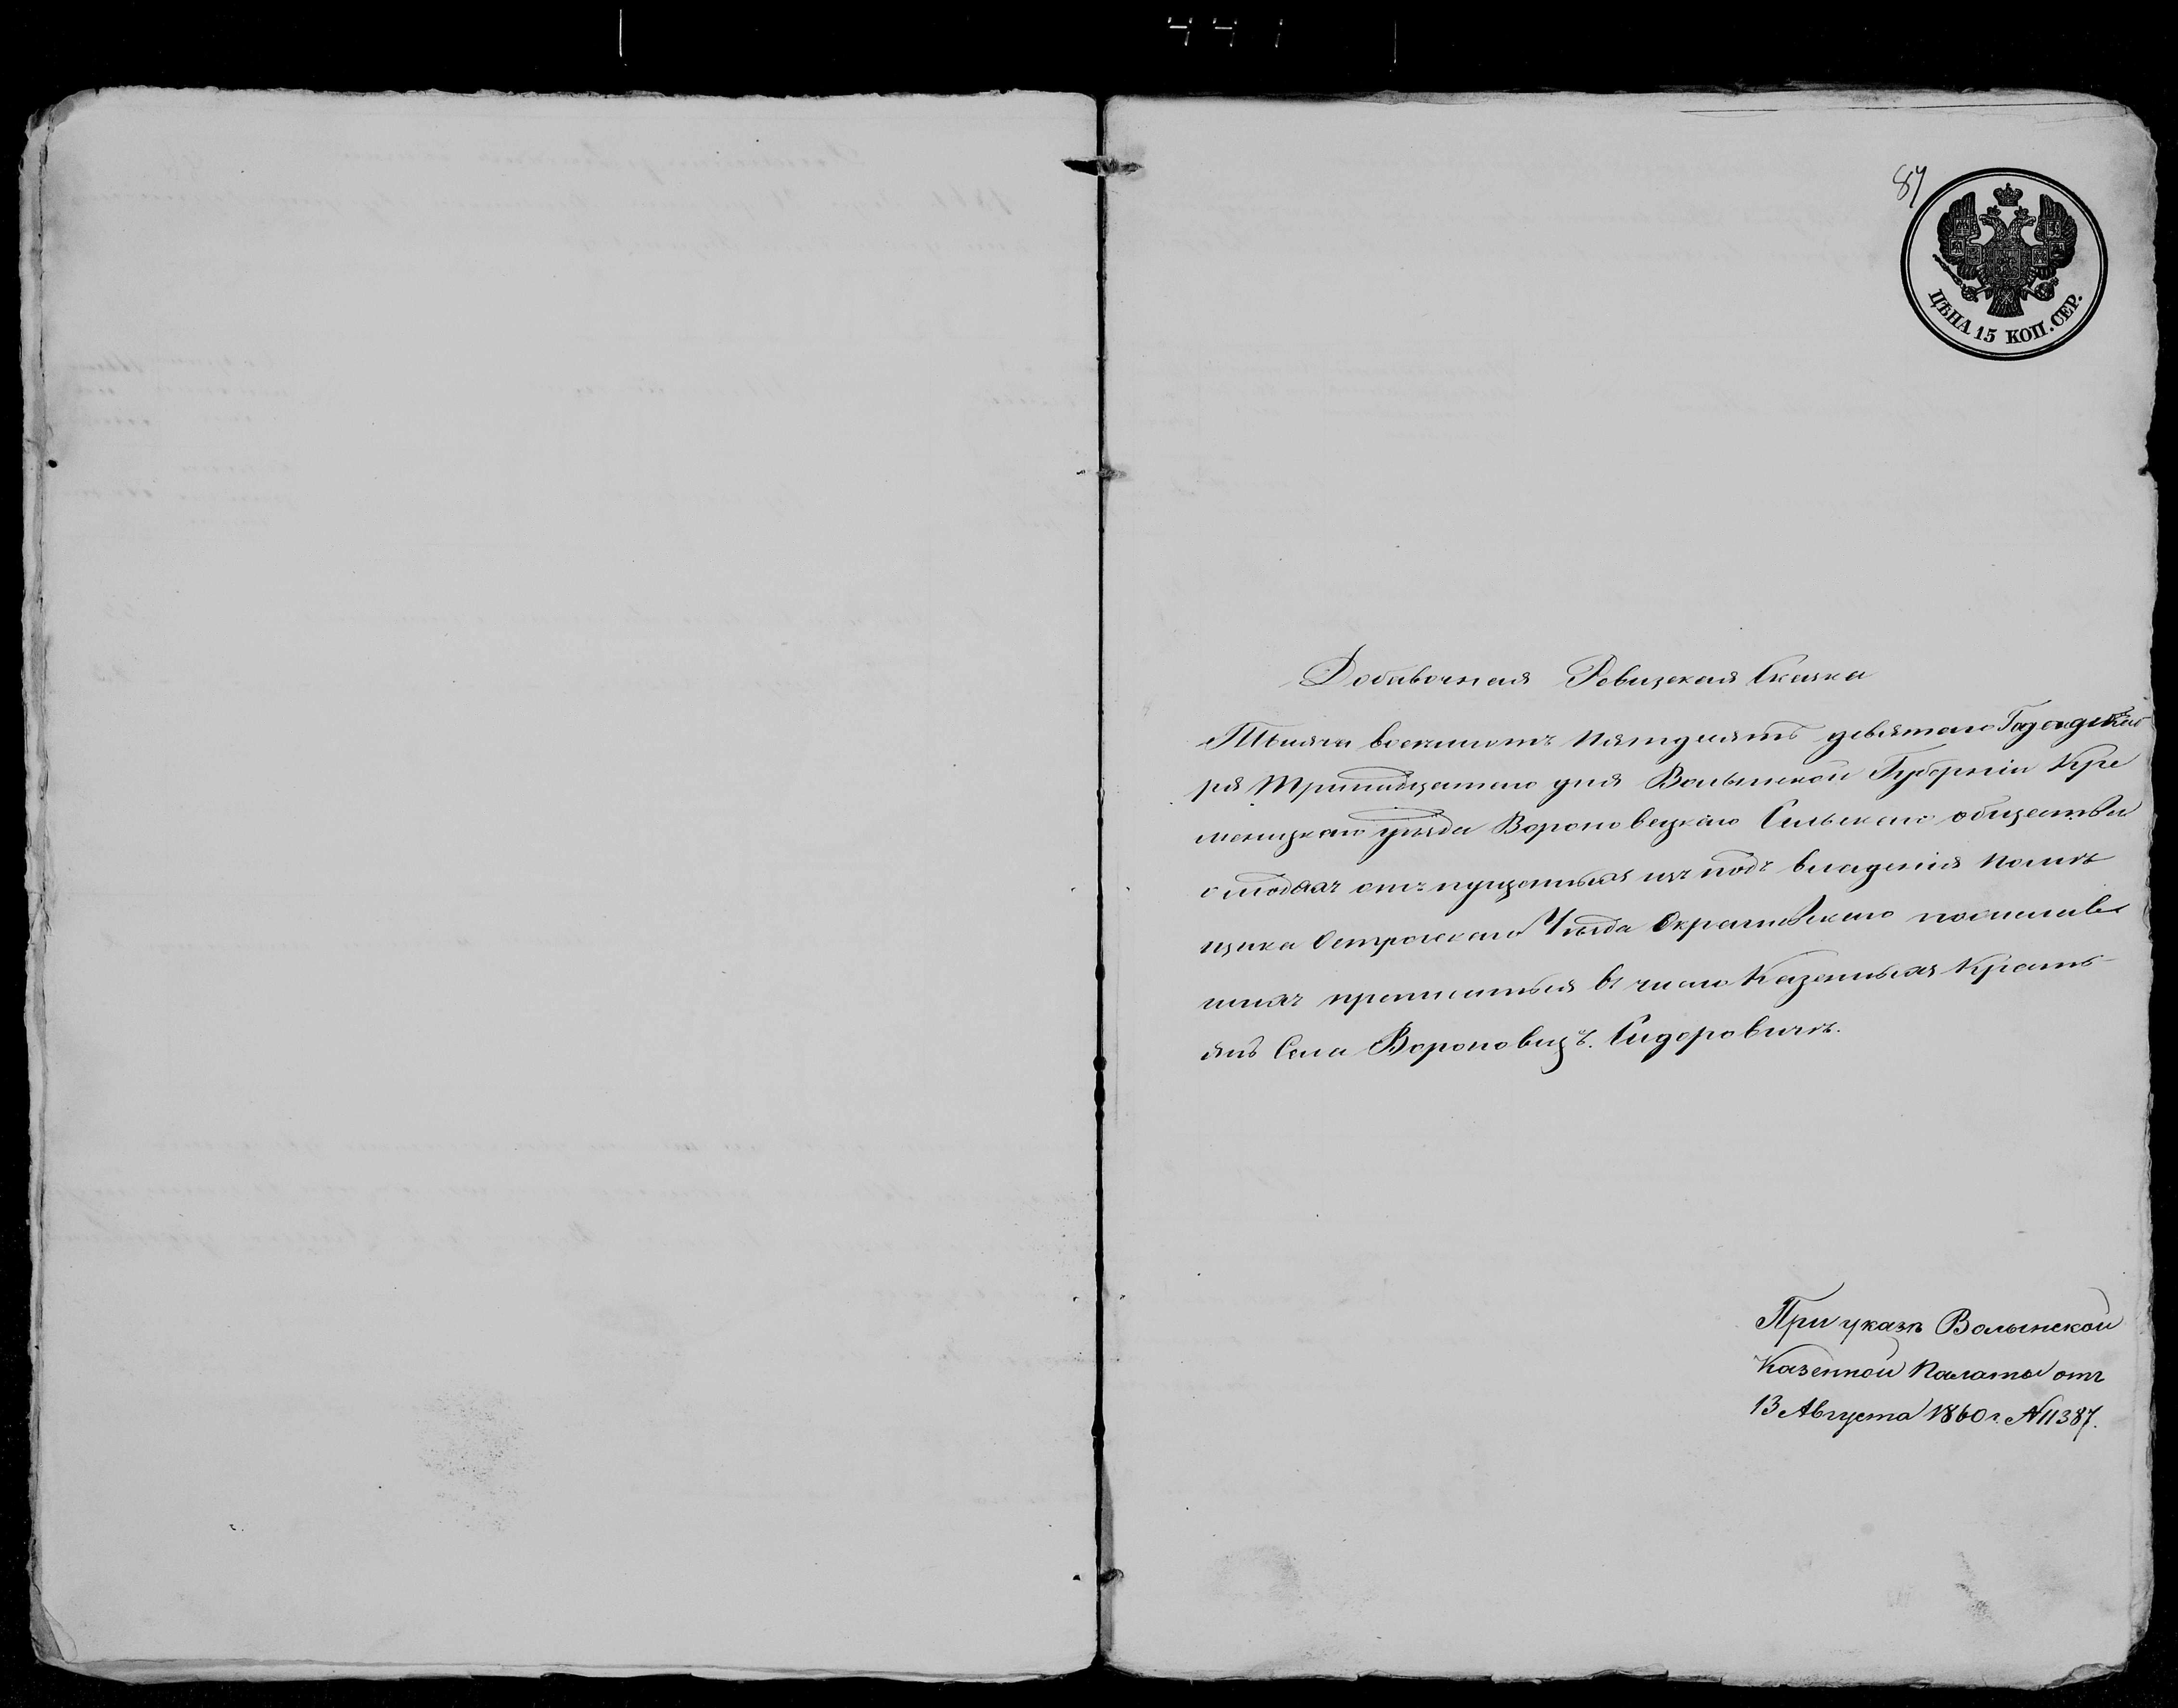 441
87
ЦѢНА 15 КОП. СЕР.
Добавочная Ревизская Сказка
Тысяча восемьсотъ пятдесятъ девятаго Года декаб
ря Тринадцатаго дня Волынской Губерніи Кре
менецкаго уѣзда Вороновецкаго Сельскаго общества
о людяхъ отъпущенныхъ изъ подъ владенія помѣ
щика Острогскаго Уѣзда пожелав
шихъ приписаться въ число Казенныхъ Кресть
янъ Села Вороновецъ. Сидоровичъ.
При указѣ Волынской
Казенной Палаты отъ
13 Августа 1860 г. № 11387.